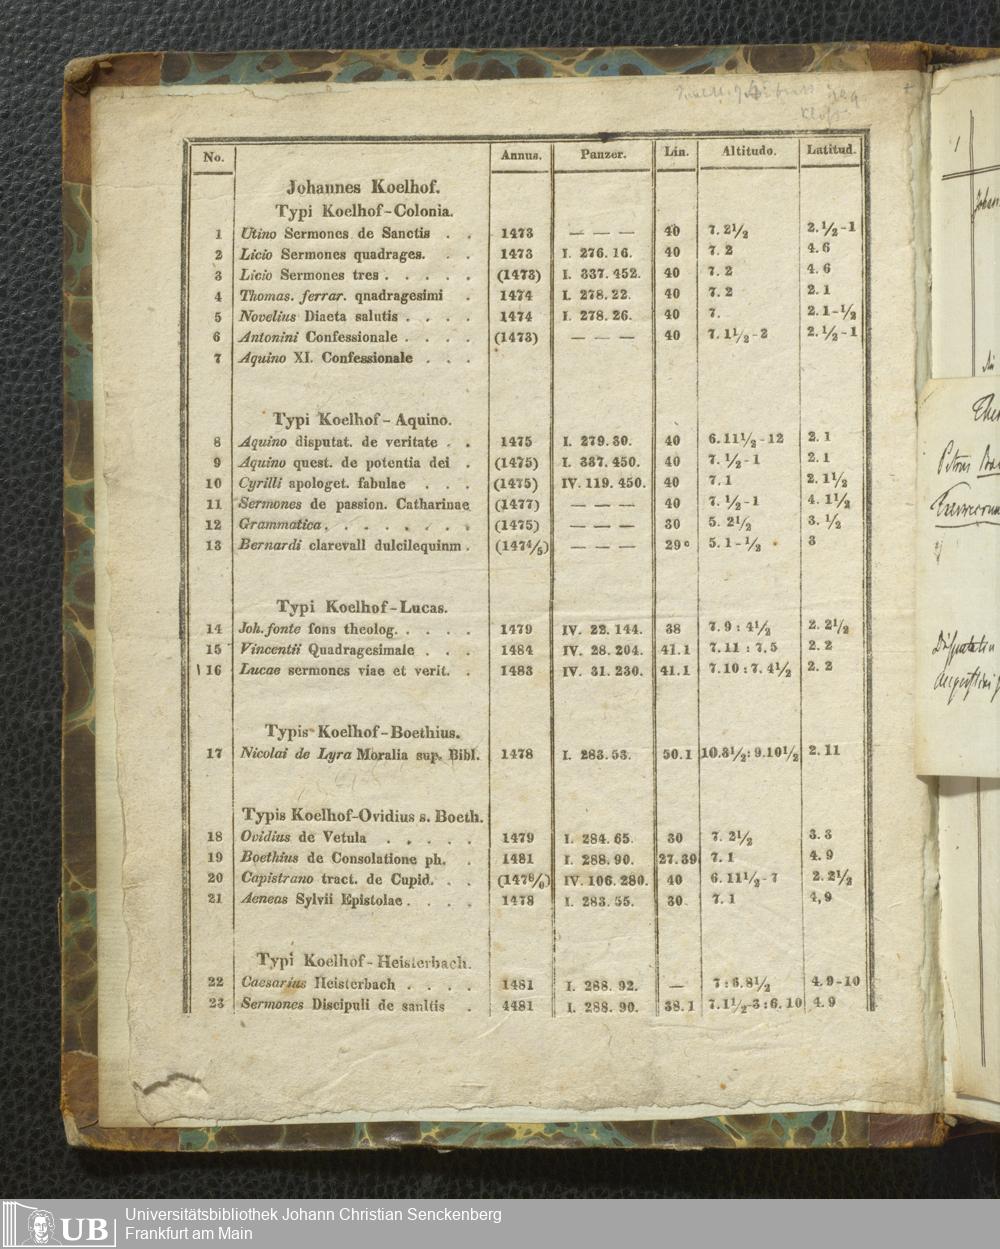 No. Annus. Panzer. Lin. Altitudo. Latitud.
Johannes Koelhof.
Typi Koelhof-Colonia.
1 Utino Sermones de Sanctis . . 1473 — — — 40 7. 2½ 2. ½-1
2 Licio Sermones quadrages. . . 1473 I. 276. 16. 40 7. 2 4. 6
3 Licio Sermones tres . . . . . (1473) I. 337. 452. 40 7. 2 4. 6
4 Thomas. ferrar. qnadragesimi . 1474 I. 278. 22. 40 7. 2 2. 1
5 Novelius Diaeta salutis . . . . 1474 I. 278. 26. 40 7. 2. 1-½
6 Antonini Confessionale . . . . (1473) — — — 40 7. 1½-2 2. ½-1
7 Aquino XI. Confessionale . . .
Typi Koelhof-Aquino.
8 Aquino disputat. de veritate . . 1475 I. 279. 30. 40 6. 11½-12 2. 1
9 Aquino quest. de potentia dei . (1475) I. 337. 450. 40 7. ½-1 2. 1
10 Cyrilli apologet. fabulae . . . (1475) IV. 119. 450. 40 7. 1 2. 1½
11 Sermones de passion. Catharinae (1477) — — — 40 7. ½-1 4. 1½
12 Grammatica . . . . . . . . (1475) — — — 30 5. 2½ 3. ½
13 Bernardi clarevall dulcilequinm . (1474/5) — — — 29 5. 1-½ 3
Typi Koelhof-Lucas.
14 Joh. fonte fons theolog. . . . . 1479 IV. 22. 144. 38 7. 9 : 4½ 2. 2½
15 Vincentii Quadragesimale . . . 1484 IV. 28. 204. 41. 1 7. 11 : 7. 5 2. 2
16 Lucae sermones viae et verit. . 1483 IV. 31. 230. 41. 1 7. 10 : 7. 4½ 2. 2
Typis Koelhof-Boethius.
17 Nicolai de Lyra Moralia sup. Bibl. 1478 I. 283. 53. 50. 1 10. 3½ : 9. 10½ 2. 11
Typis Koelhof-Ovidius s. Boeth.
18 Ovidius de Vetula . . . . . 1479 I. 284. 65. 30 7. 2½ 3. 3
19 Boethius de Consolatione ph. . 1481 I. 288. 90. 27. 39 7. 1 4. 9
20 Capistrano tract. de Cupid. . . IV. 106. 280. 40 6. 11½-7 2. 2½
21 Aeneas Sylvii Epistolae . . . . 1478 I. 283. 55. 30 7. 1 4, 9
Typi Koelhof-Heisterbach.
22 Caesarius Heisterbach . . . . 1481 I. 288. 92. — 7 : 6. 8½ 4. 9-10
23 Sermones Discipuli de sanltis . 4481 I. 288. 90. 38. 1 7. 1½-3 : 6. 10 4. 9
UB
Universitätsbibliothek Johann Christian Senckenberg
Frankfurt am Main